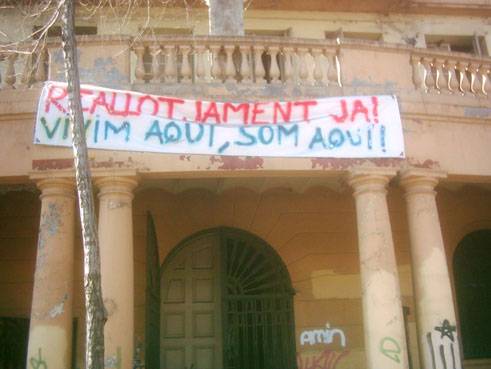 REALLOTJAMENT JA!
VIVIM AQUÍ, SOM AQUÍ!
Amin